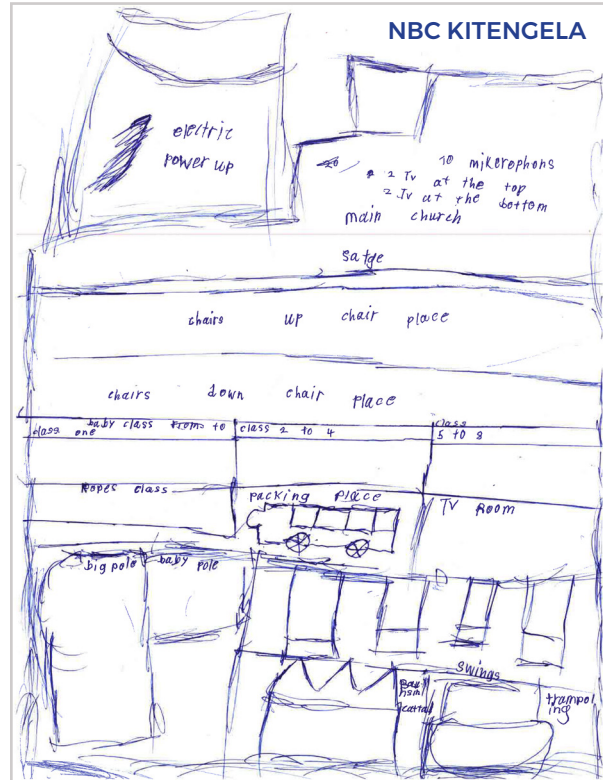 NBC KITENGELA
electric
power up
10 mikerophons
2 Tv at the top
2 Tv at the bottom
main church
satge
chairs up chair place
chairs down chair place
baby class from to
class one
class 2 to 4
class
5 to 8
Ropes class
packing place
TV Room
big pole
baby pole
swings
trampol
ing